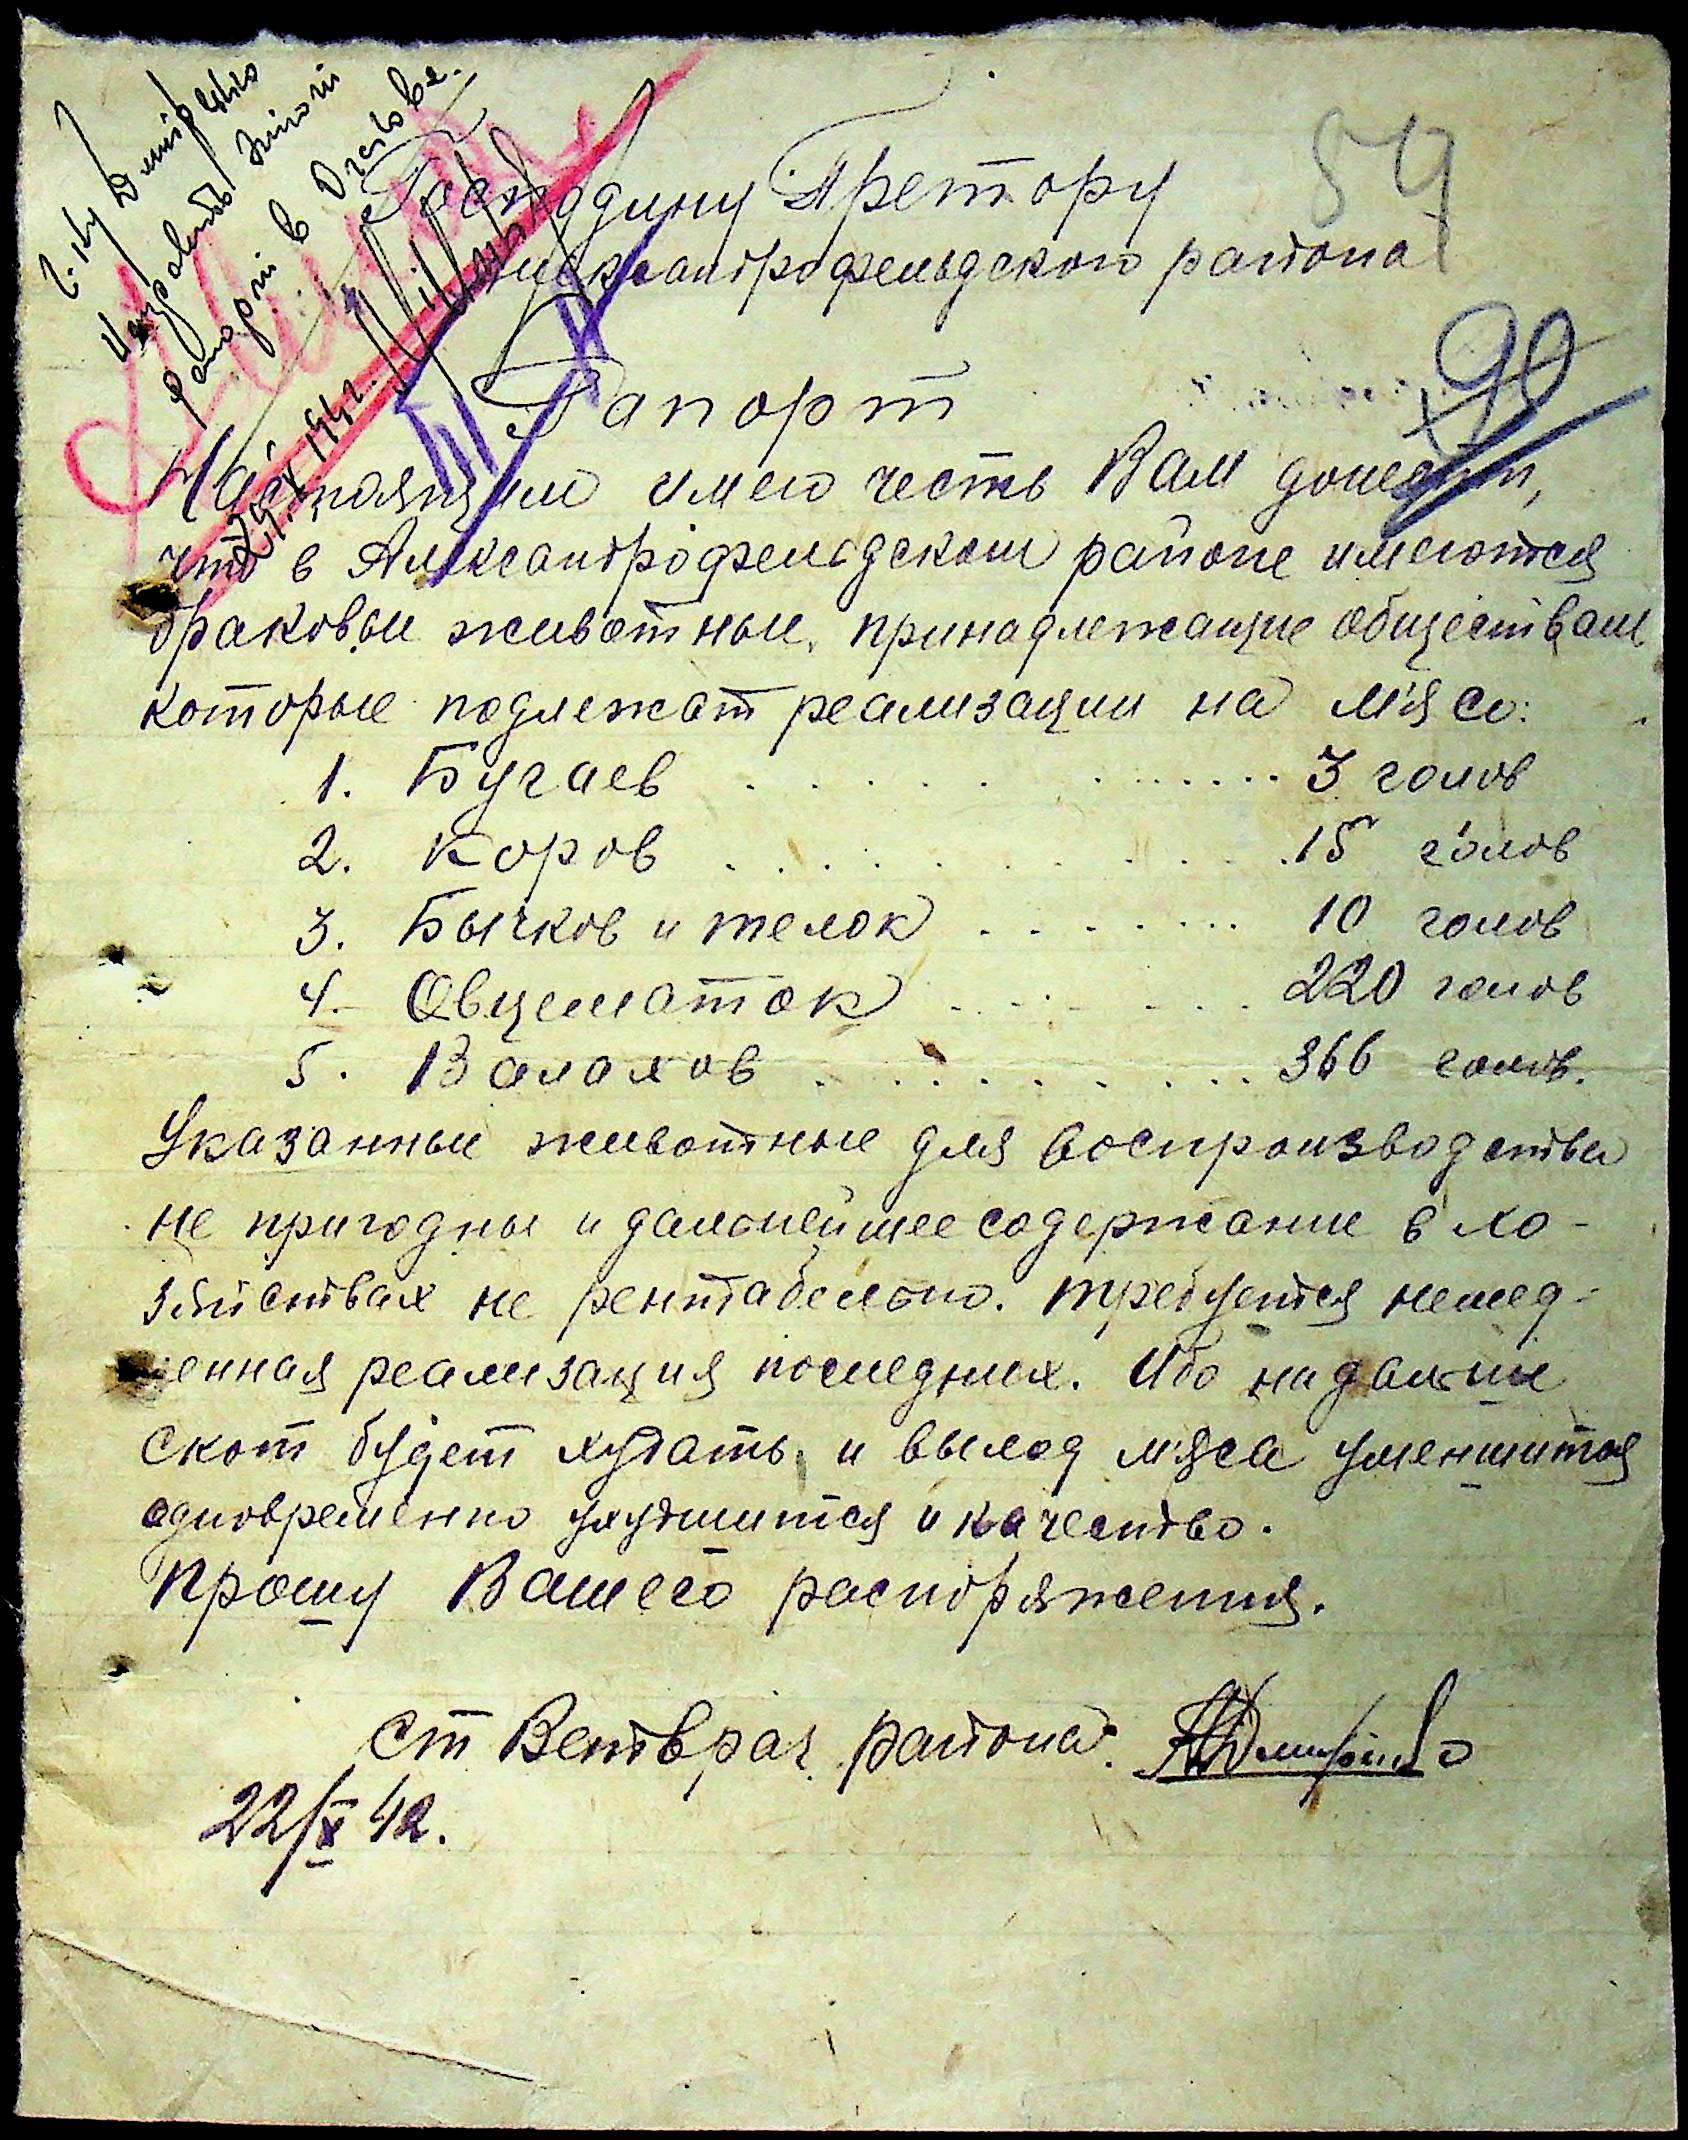 г-ну Дмитренко
Направить
рапорт в
29.X 1942.
Господину Претору
Александрофельдского района
54
99
Рапорт
Настоящим имею честь Вам донести,
что в Александрофельдском районе имеются
браковые животные, принадлежащие обществам
которые подлежат реализации на м'ясо:
1. Бугаев . . . . . . . . . . . 3 голов
2. Коров . . . . . . . . . . . 15 голов
3. Бычков и телок . . . . . . . . 10 голов
4. Овцематок . . . . . . . 220 голов
5. Валахов . . . . . . . . . . 366 голов.
Указанные животные для воспроизводства
не пригодны и дальнейшее содержание в хо-
зяйствах не рентабельно. Требуется немед-
ленная реализация последних. Ибо надальше
скот будет худать и выход м'яса уменшится
одновременно ухудшится и качество.
Прошу Вашего распоряжения.
Ст Ветврач района. Дмитренко
22/X 42.